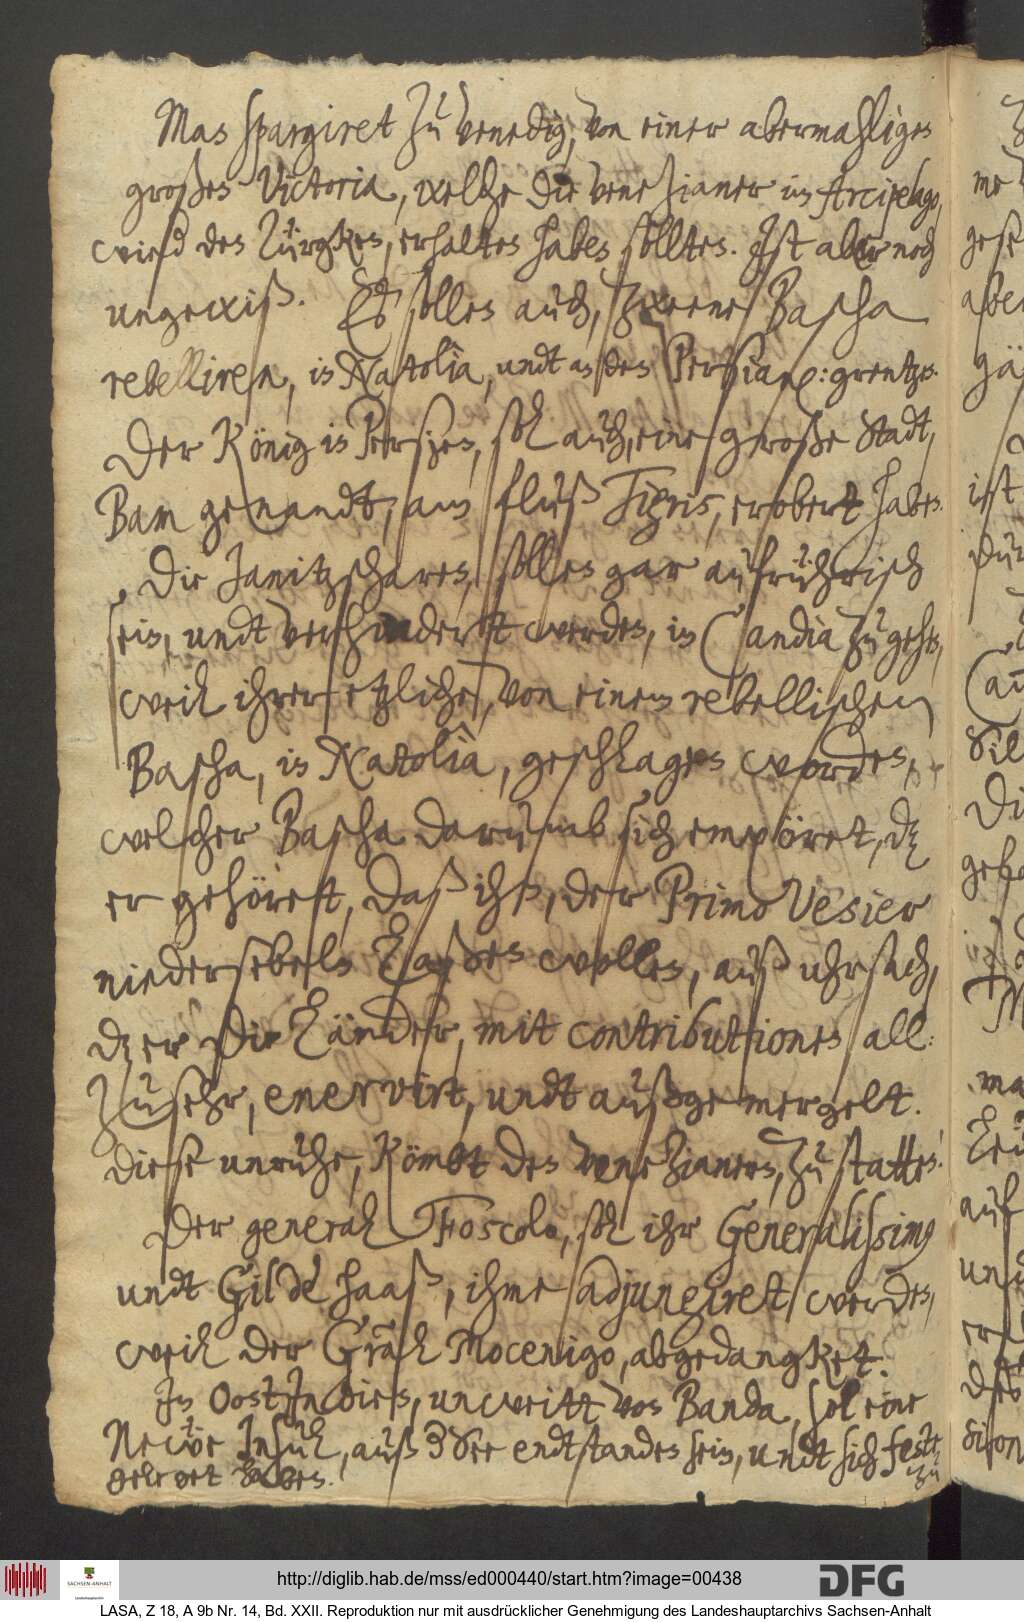 Man spargiret zu Venedig, von einer abermahligen
großen Victoria, welche die Venezianer im Arcipelago,
wied den Türgken, erhalten haben sollten. Ist aber noch
ungewiß. Es sollen auch, zweene Bascha
rebelliren, in Natolia, undt an den Persian: grentzen.
Der König in Persien, sol auch, eine große Stadt,
Bam genandt, am fluß Tigris, erobert haben.
Die Janitzscharen, sollen gar aufrührisch
sein, undt verhindert werden, in Candia zu gehen,
weil ihrer etzliche, von einem rebellischen
Bascha, in Natolia, geschlagen worden,
welcher Bascha darumb sich empöret, dz
er gehöret, daß ihn, der Primo Vesier
niedersebeln laßen wollen, auß uhrsach,
dz er die Länder, mit contributionen all:
zusehr, enervirt, undt außgemergelt.
Diese unruhe, kömbt den Venezianern, zu statten.
Der general Foscolo, sol ihr Generalissimo
undt Gil de Haaß, ihme adjungiret werden,
weil der Gral Mocenigo, abgedangket.
In Oost Indien, unweitt von Banda, sol eine
Newe Insul, auß der See endtstanden sein, undt sich feste
gesetzet haben.
zu
http://diglib.hab.de/mss/ed000440/start.htm?image=00438
SACHSEN-ANHALT
DFG
LASA, Z 18, A 9b Nr. 14, Bd. XXII. Reproduktion nur mit ausdrücklicher Genehmigung des Landeshauptarchivs Sachsen-Anhalt